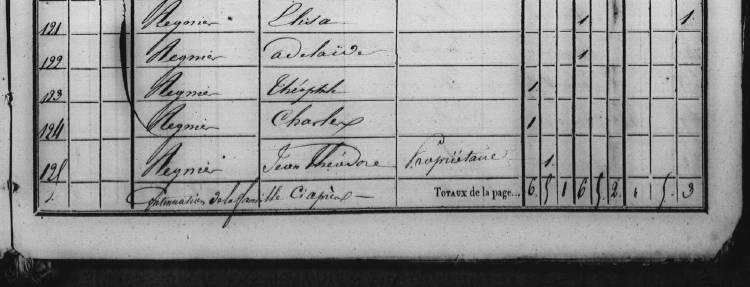 121 Regnier Elisa 1 1
122 Regnier adelaïde 1
123 Regnier Théophile 1
124 Regnier Charles 1
125 Regnier Jean Théodore Propriétaire 1
Continuation de la famille Ciaprès — TOTAUX de la page... 6 5 1 6 5 2 1 5 3